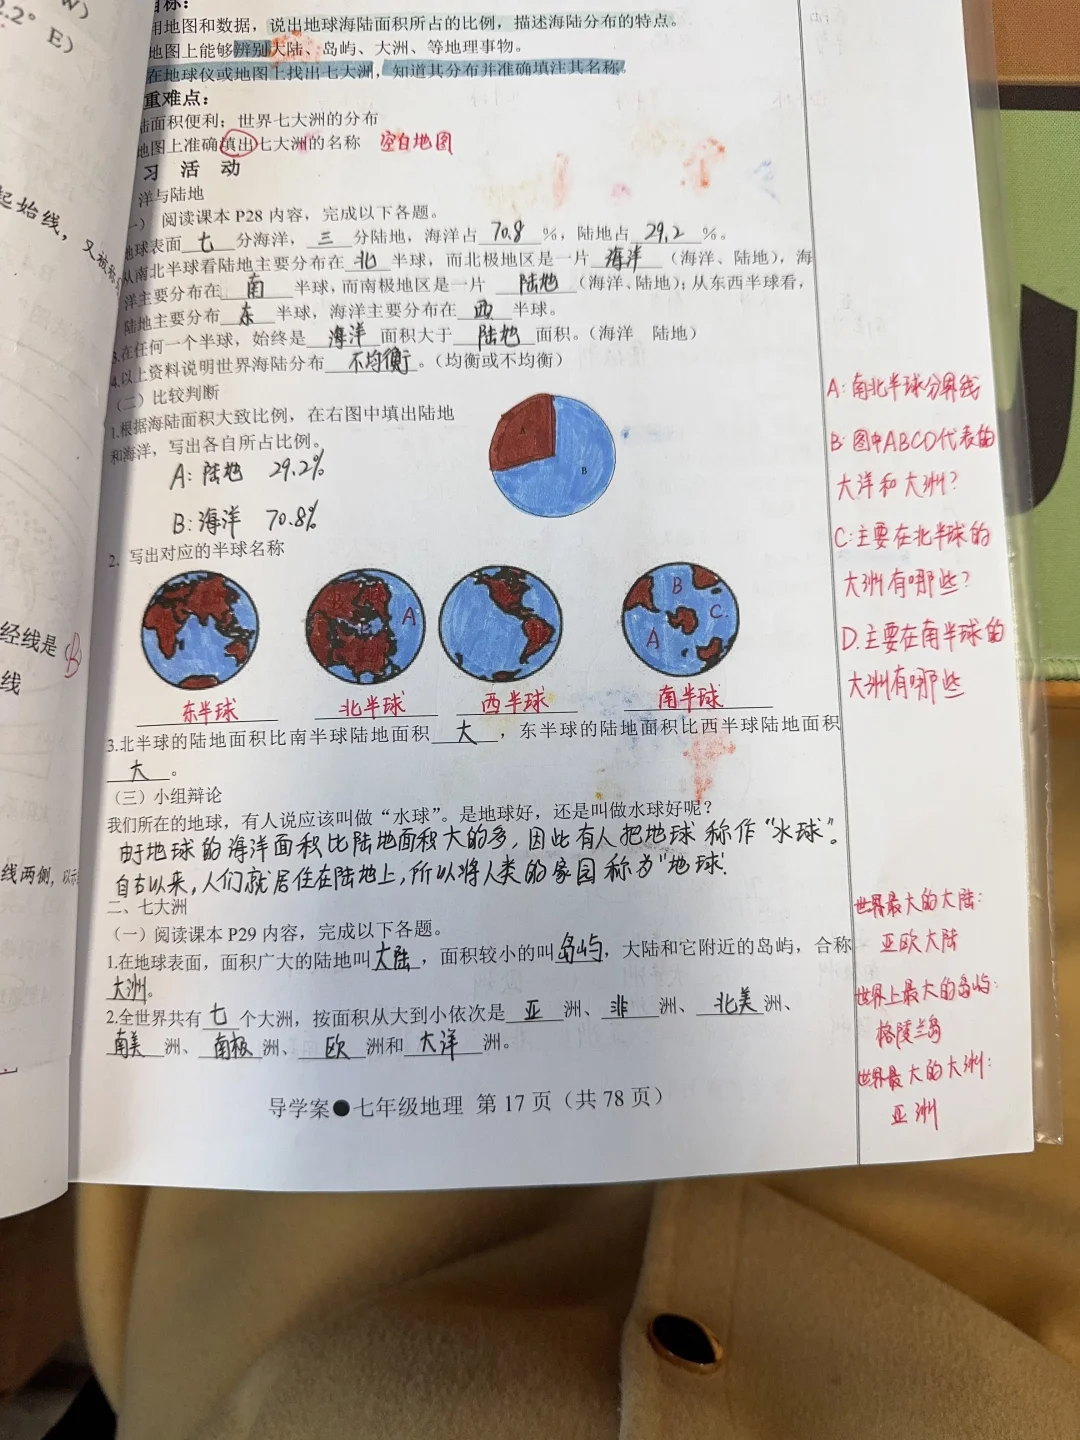 2.2° E）
起始线，又被称
经线是 B
线
线两侧，以示
目标：
用地图和数据，说出地球海陆面积所占的比例，描述海陆分布的特点。
地图上能够辨别大陆、岛屿、大洲、等地理事物。
在地球仪或地图上找出七大洲，知道其分布并准确填注其名称。
重难点：
陆面积便利；世界七大洲的分布
地图上准确填出七大洲的名称 空白地图
习 活 动
洋与陆地
一） 阅读课本 P28 内容，完成以下各题。
地球表面 七 分海洋， 三 分陆地，海洋占 70.8 %，陆地占 29.2 %。
从南北半球看陆地主要分布在 北 半球，而北极地区是一片 海洋 （海洋、陆地），海
洋主要分布在 南 半球，而南极地区是一片 陆地 （海洋、陆地）；从东西半球看，
陆地主要分布 东 半球，海洋主要分布在 西 半球。
3.在任何一个半球，始终是 海洋 面积大于 陆地 面积。（海洋 陆地）
4.以上资料说明世界海陆分布 不均衡 。（均衡或不均衡）
（二）比较判断
1.根据海陆面积大致比例，在右图中填出陆地
和海洋，写出各自所占比例。
A：陆地 29.2%
B：海洋 70.8%
A
B
2．写出对应的半球名称
B A
B C A
东半球 北半球 西半球 南半球
3.北半球的陆地面积比南半球陆地面积 大 ，东半球的陆地面积比西半球陆地面积
大 。
（三）小组辩论
我们所在的地球，有人说应该叫做“水球”。是地球好，还是叫做水球好呢？
由于地球的海洋面积比陆地面积大的多，因此有人把地球称作“水球”。
自古以来，人们就居住在陆地上，所以将人类的家园称为“地球”.
二、七大洲
（一）阅读课本 P29 内容，完成以下各题。
1.在地球表面，面积广大的陆地叫大陆，面积较小的叫岛屿，大陆和它附近的岛屿，合称
大洲。
2.全世界共有 七 个大洲，按面积从大到小依次是 亚 洲、 非 洲、 北美 洲、
南美 洲、 南极 洲、 欧 洲和 大洋 洲。
导学案●七年级地理 第 17 页（共 78 页）
A：南北半球分界线
B：图中ABCD代表的
大洋和大洲？
C：主要在北半球的
大洲有哪些？
D.主要在南半球的
大洲有哪些
世界最大的大陆：
亚欧大陆
世界上最大的岛屿：
格陵兰岛
世界最大的大洲：
亚洲